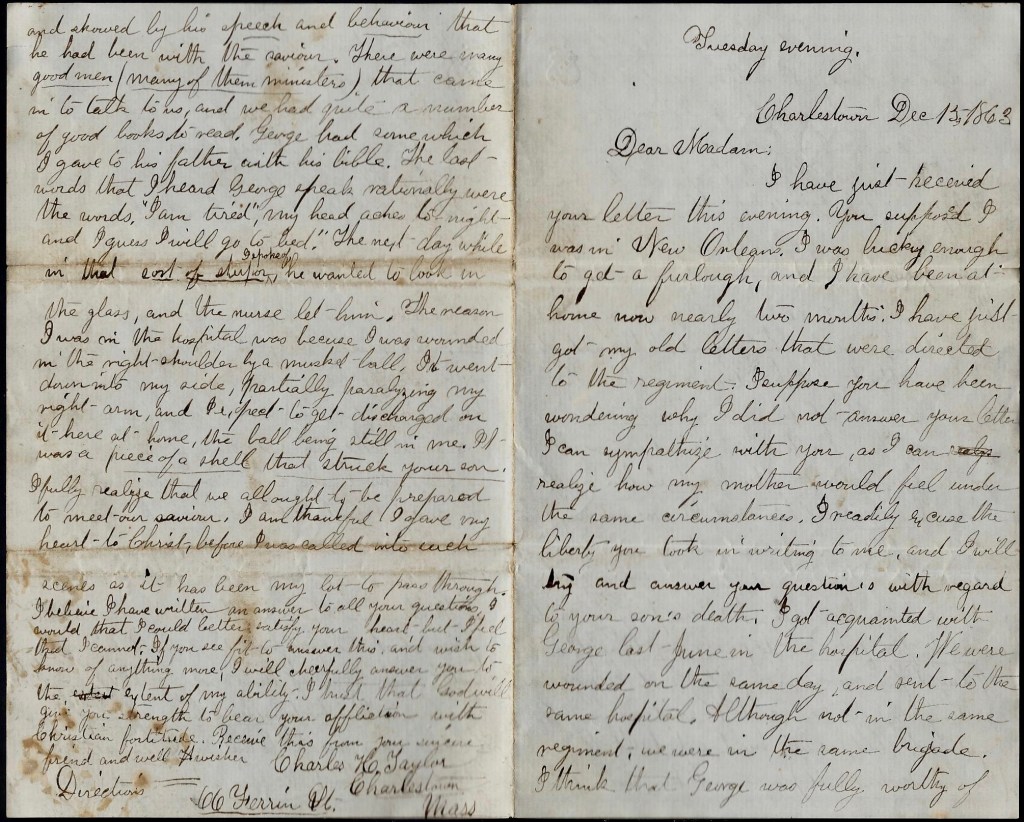 Tuesday evening.
Charlestown Dec 15, 1863
Dear Madam;
I have just received
your letter this evening. You suppos'd I
was in New Orleans. I was lucky enough
to get a furlough, and I have been at
home now nearly two months. I have just
got my old letters that were directed
to the regiment. I suppose you have been
wondering why I did not answer your letter
I can sympathize with you, as I can
realize how my mother would feel under
the same circumstances. I readily excuse the
liberty you took in writing to me, and I will
try and answer your questions with regard
to your son's death. I got acquainted with
George last June in the hospital. We were
wounded on the same day, and sent to the
same hospital. Although not in the same
regiment, we were in the same brigade.
I think that George was fully worthy of
and showed by his speech and behaviour that
he had been with the saviour. There were many
good men (many of them ministers) that came
in to talk to us, and we had quite a number
of good books to read, George had some which
I gave to his father with his bible. The last
words that I heard George speak rationally were
the words, "I am tired", my head aches to-night
and I guess I will go to bed." The next day while
in that sort of stupor I spoke of, he wanted to look in
the glass, and the nurse let him. The reason
I was in the hospital was becuse I was wounded
in the right shoulder by a musket ball. It went
down into my side, partially paralyzing my
right arm, and I expect to get discharged on
it here at home, the ball being still in me. It
was a piece of a shell that struck your son.
I fully realize that we all ought to be prepared
to meet our saviour. I am thankful I gave my
heart to Christ, before I was called into such
scenes as it has been my lot to pass through.
I believe I have written an answer to all your questions, I
would that I could better satisfy your heart but I feel
that I cannot. If you see fit to answer this, and wish to
know of anything more, I will cheerfully answer you to
the extent of my ability. I trust that God will
give you strength to bear your affliction with
Christian fortitude. Receive this from your sincere
friend and well wisher Charles H. Taylor
Directions Charlestown
66 Ferrin St. Mass